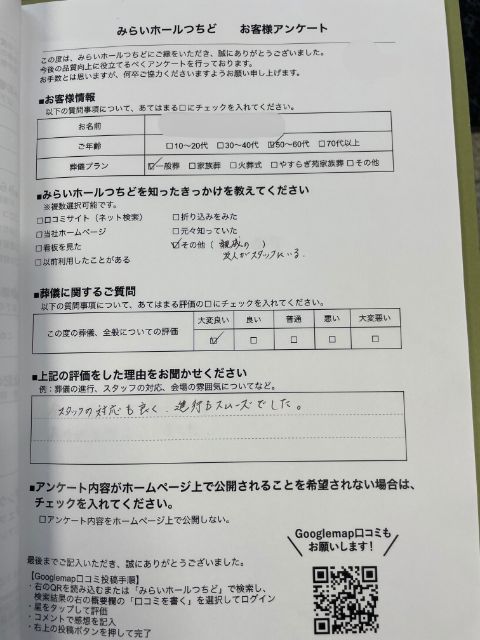 みらいホールつちど　お客様アンケート
この度は、みらいホールつちどにご縁をいただき、誠にありがとうございました。
今後の品質向上に役立てるべくアンケートを行っております。
お手数とは思いますが、何卒ご協力くださいますようお願い申し上げます。
■お客様情報
以下の質問事項について、あてはまる□にチェックを入れてください。
お名前
ご年齢 □10～20代 □30～40代 ☑50～60代 □70代以上
葬儀プラン ☑一般葬 □家族葬 □火葬式 □やすらぎ苑家族葬 □その他
■みらいホールつちどを知ったきっかけを教えてください
※複数選択可能です。
□口コミサイト（ネット検索） □折り込みをみた
□当社ホームページ □元々知っていた
□看板を見た ☑その他（ 親戚の ）
友人がスタッフにいる.
□以前利用したことがある
■葬儀に関するご質問
以下の質問事項について、あてはまる評価の□にチェックを入れてください。
大変良い 良い 普通 悪い 大変悪い
この度の葬儀、全般についての評価 ☑ □ □ □ □
■上記の評価をした理由をお聞かせください
例：葬儀の進行、スタッフの対応、会場の雰囲気についてなど。
スタッフの対応も良く、進行もスムーズでした。
■アンケート内容がホームページ上で公開されることを希望されない場合は、
チェックを入れてください。
□アンケート内容をホームページ上で公開しない。
Googlemap口コミも
お願いします！
最後までご記入いただき、誠にありがとうございました。
【Googlemap口コミ投稿手順】
・右のQRを読み込むまたは「みらいホールつちど」で検索し、
検索結果の右の概要欄の「口コミを書く」を選択してログイン
・星をタップして評価
・コメントで感想を記入
・右上の投稿ボタンを押して完了